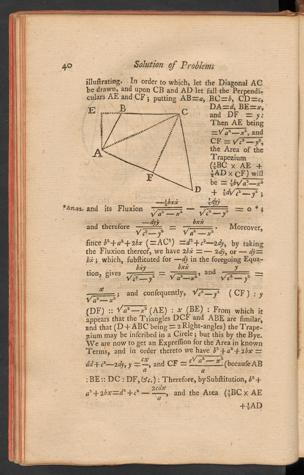 40 Solution of Problems
illustrating. In order to which, let the Diagonal AC
be drawn, and upon CB and AD let fall the Perpendi-
culars AE and CF; putting AB=a, BC=b, CD=c,
DA=d, BE=x,
and DF = y:
Then AE being
=√a²—x², and
CF = √c²—y²,
the Area of the
Trapezium
(½BC × AE +
½AD × CF) will
be = ½b√a²—x²
+ ½d√c²—y²;
E B C
A
F
D
and its Fluxion —½bxẋ/√a²—x² — ½dyẏ/√c²—y² = 0
and therefore —dyẏ/√c²—y² = bxẋ/√a²—x². Moreover,
since b²+a²+2bx (=AC²) =d²+c²—2dy, by taking
the Fluxion thereof, we have 2bẋ = — 2dẏ, or — dẏ=
bẋ; which, substituted for —dẏ in the foregoing Equa-
tion, gives bẋy/√c²—y² = bxẋ/√a²—x², and y/√c²—y² =
x/√a²—x²; and consequently, √c²—y² (CF) : y
(DF) :: √a²—x² (AE) : x (BE) : From which it
appears that the Triangles DCF and ABE are similar,
and that (D + ABC being = 2 Right-angles) the Trape-
zium may be inscribed in a Circle; but this by the Bye.
We are now to get an Expression for the Area in known
Terms, and in order thereto we have b²+a²+2bx =
dd+c²—2dy, y = cx/a, and CF = c√a²—x²/a (because AB
: BE :: DC : DF, &c.) : Therefore, by Substitution, b²+
a²+2bx=d²+c²— 2cdx/a, and the Area (½BC × AE
+½AD